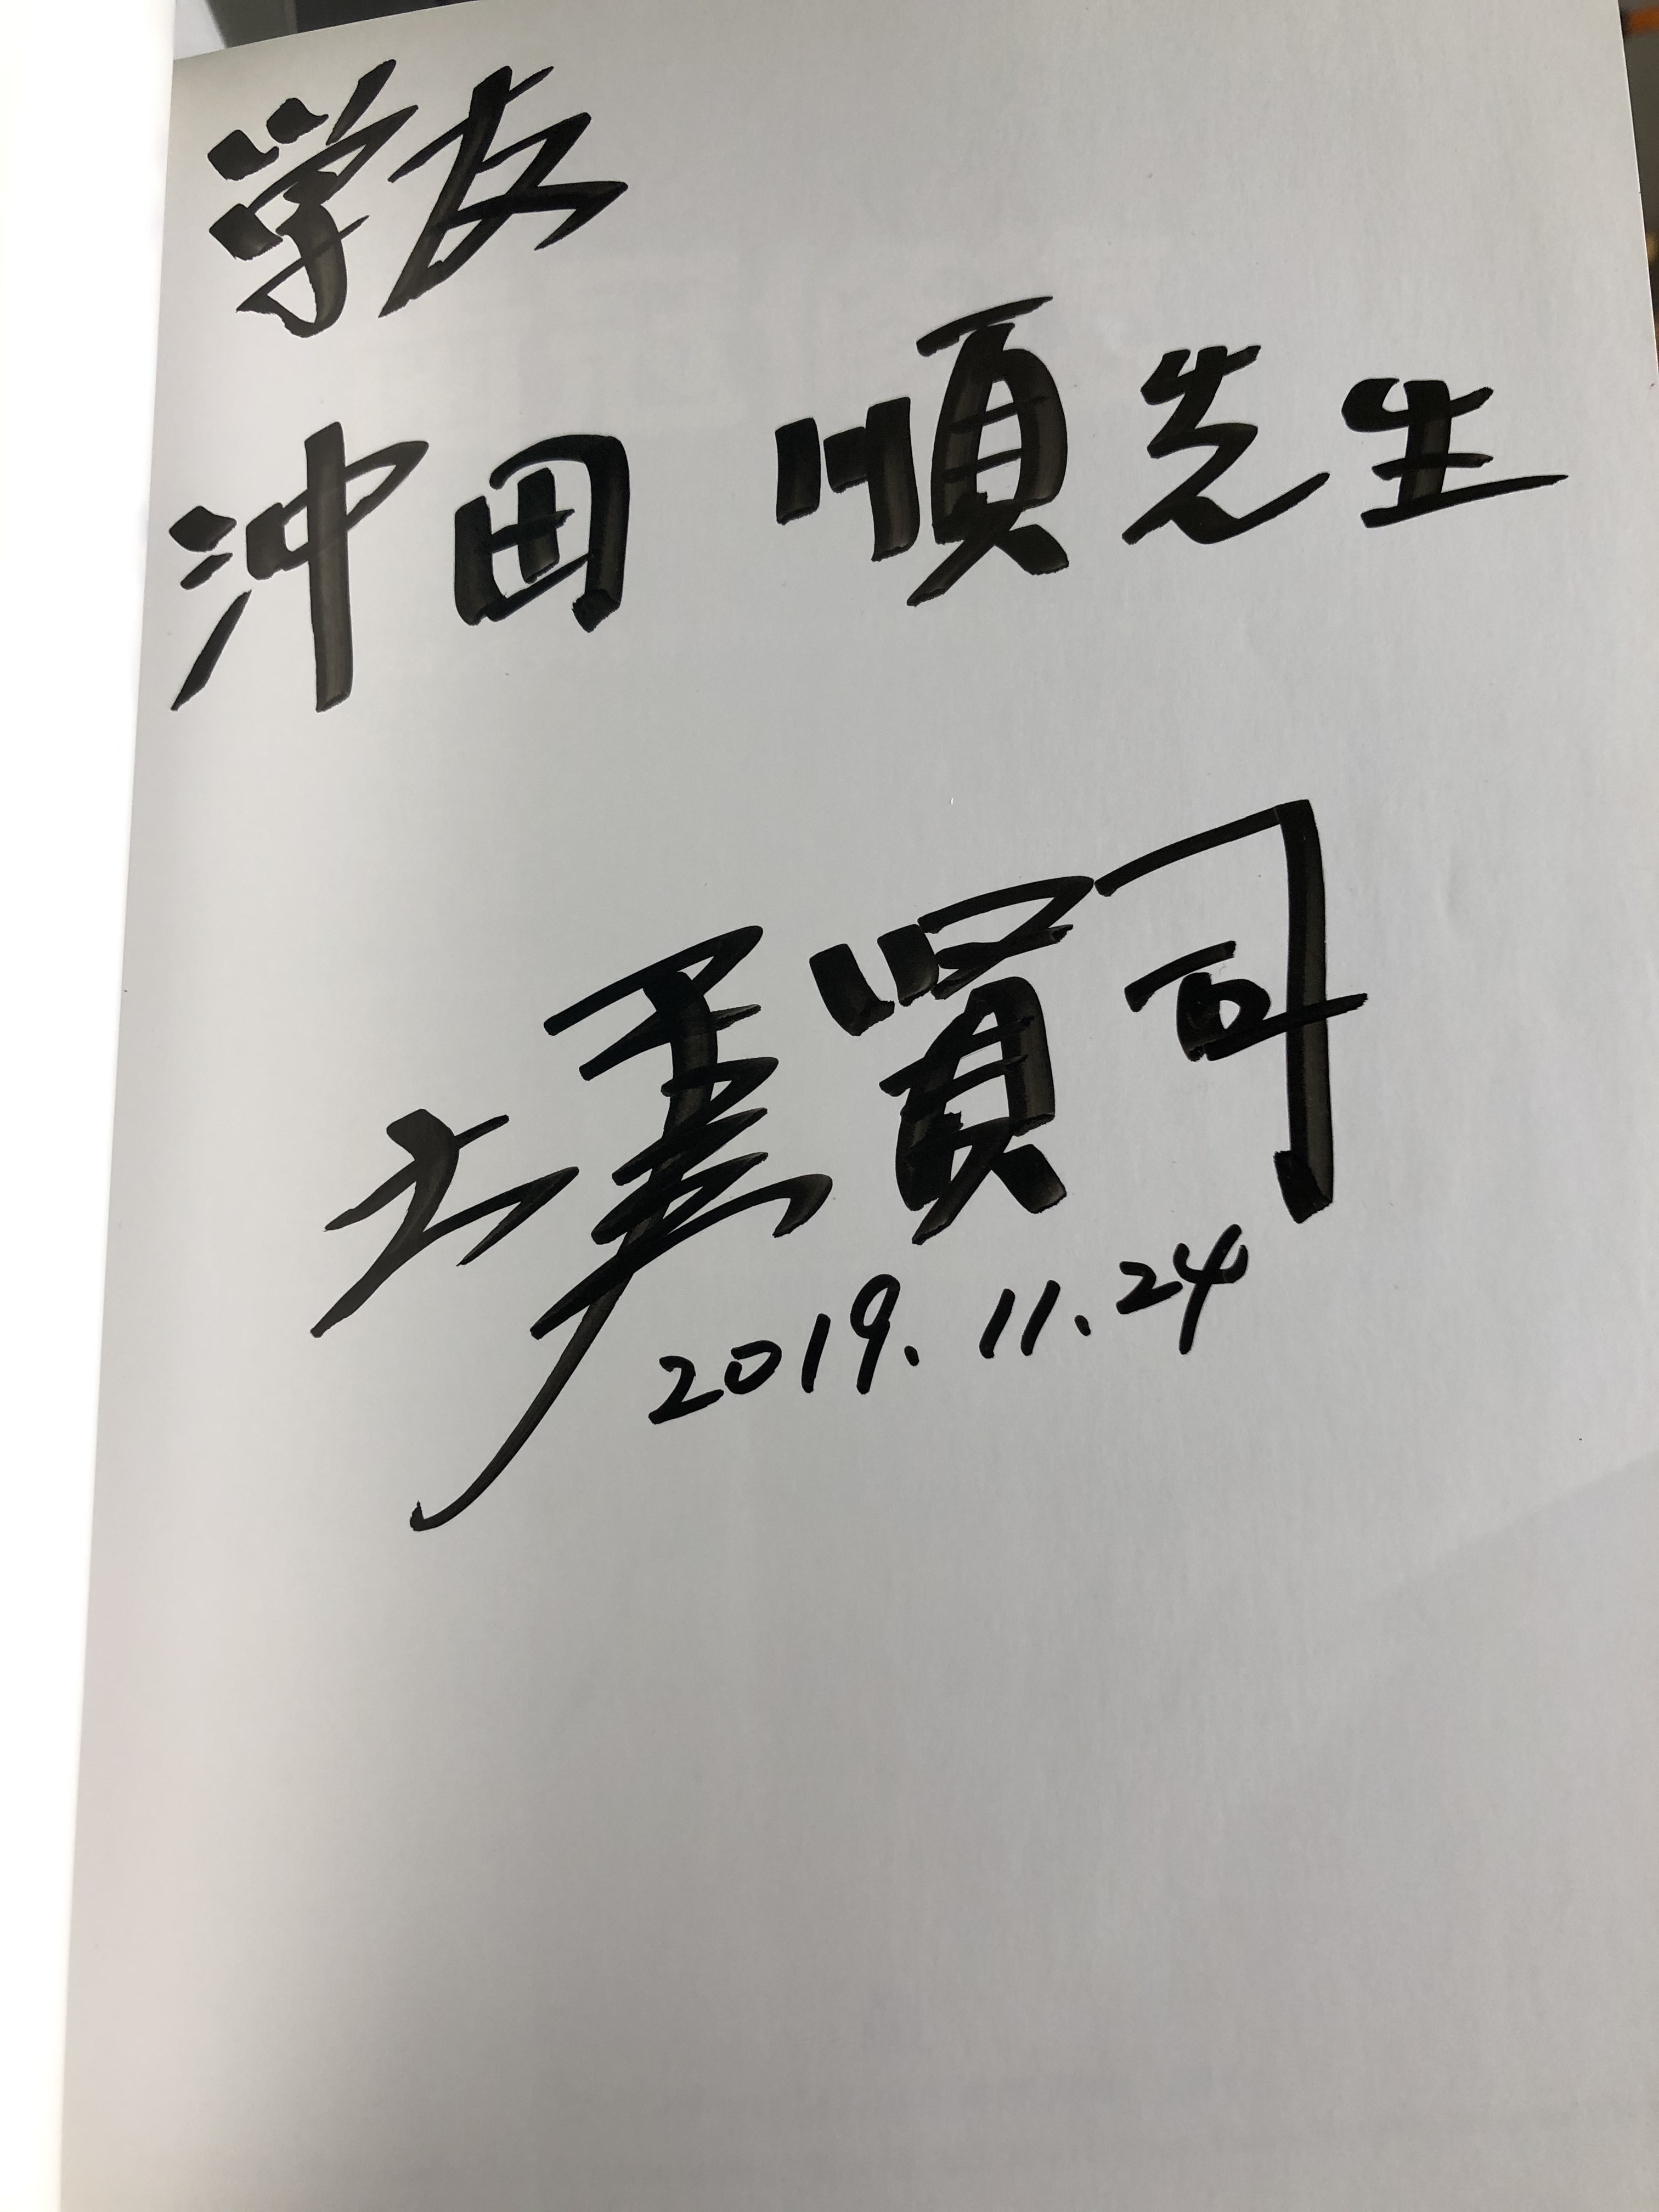 学友
沖田 順先生
賢司
2019.11.24